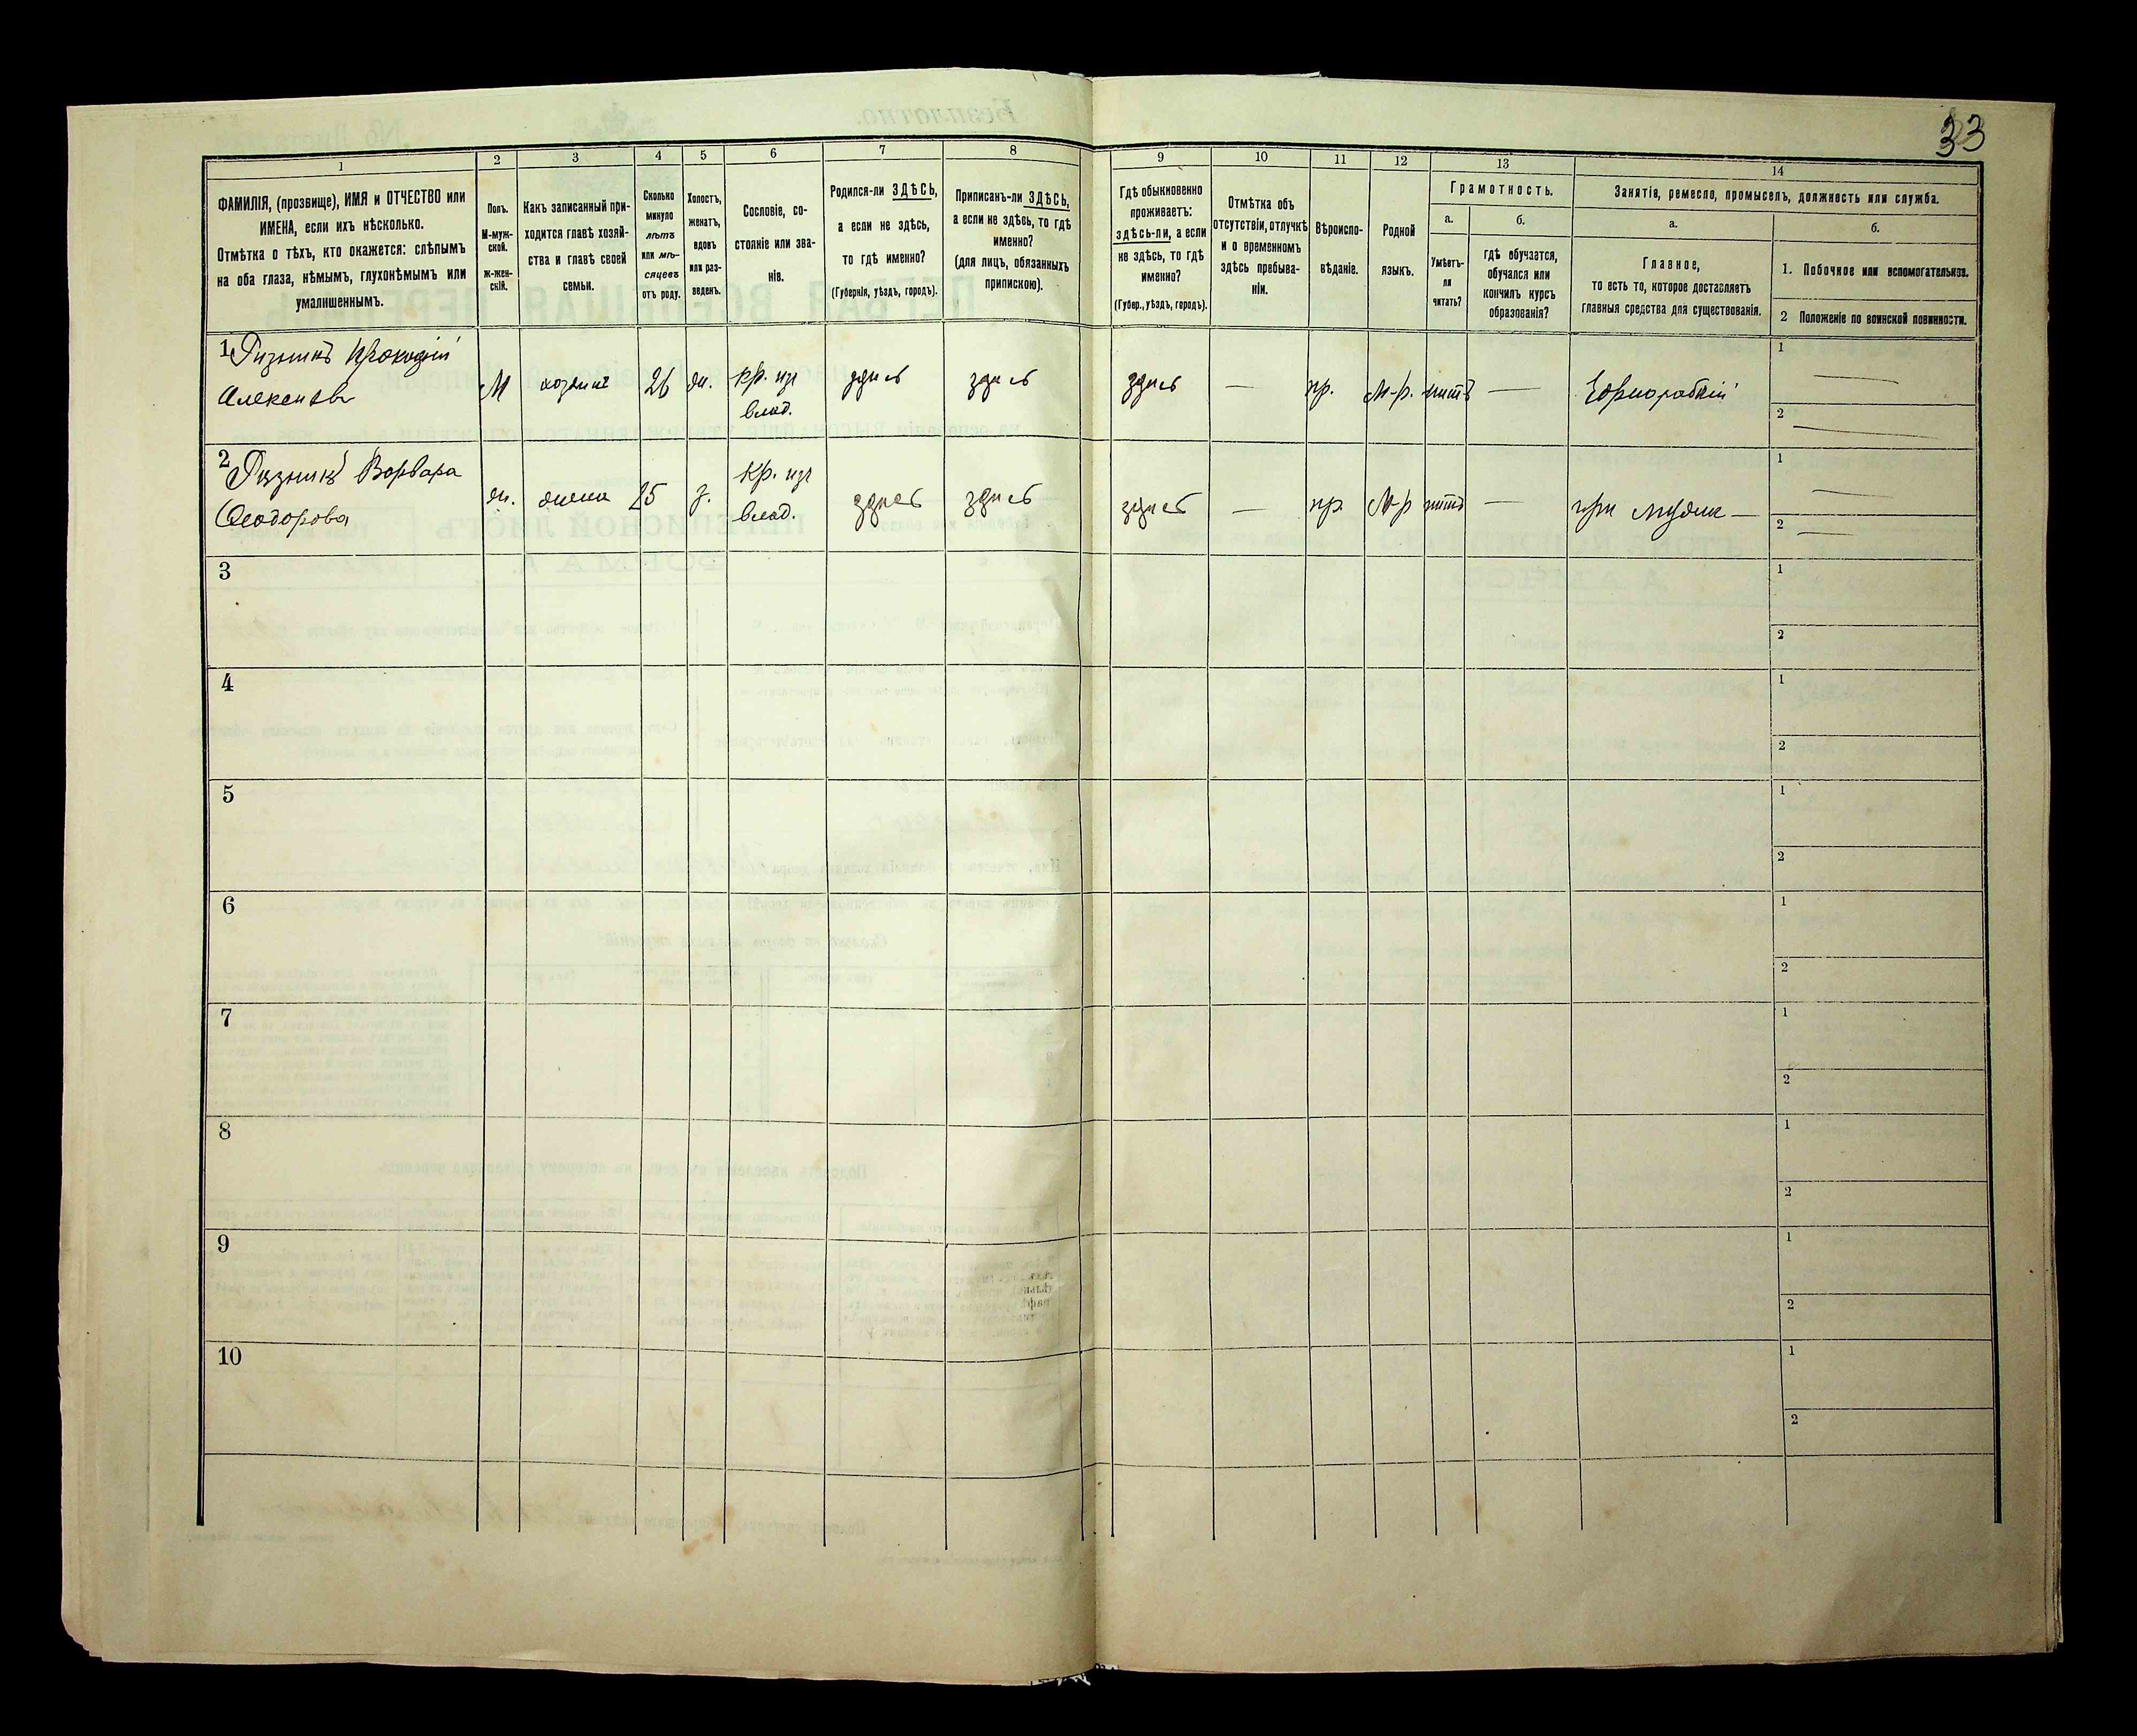 33
1
2
3
4
5
6
7
8
9
10
11
12
13
14
ФАМИЛІЯ, (прозвище), ИМЯ и ОТЧЕСТВО или
ИМЕНА, если ихъ нѣсколько.
Отмѣтка о тѣхъ, кто окажется: слѣпымъ
на оба глаза, нѣмымъ, глухонѣмымъ или
умалишеннымъ.
Полъ.
М-муж-
ской.
ж-жен-
скій.
Какъ записанный при-
ходится главѣ хозяй-
ства и главѣ своей
семьи.
Сколько
минуло
лѣтъ
или мѣ-
сяцевъ
отъ роду.
Холостъ,
женатъ,
вдовъ
или раз-
веденъ.
Сословіе, со-
стояніе или зва-
ніе.
Родился-ли ЗДѢСЬ,
а если не здѣсь,
то гдѣ именно?
(Губернія, уѣздъ, городъ).
Приписанъ-ли ЗДѢСЬ,
а если не здѣсь, то гдѣ
именно?
(для лицъ, обязанныхъ
припискою).
Гдѣ обыкновенно
проживаетъ:
здѣсь-ли, а если
не здѣсь, то гдѣ
именно?
(Губер., уѣздъ, городъ).
Отмѣтка объ
отсутствіи, отлучкѣ
и о временномъ
здѣсь пребыва-
ніи.
Вѣроиспо-
вѣданіе.
Родной
языкъ.
Грамотность.
а.
б.
Умѣетъ-
ли
читать?
гдѣ обучается,
обучался или
кончилъ курсъ
образованія?
Занятія, ремесло, промыселъ, должность или служба.
а.
б.
Главное,
то есть то, которое доставляетъ
главныя средства для существованія.
1. Побочное или вспомогательное.
2 Положеніе по воинской повинности.
1 Прокофій
М хозяинъ 26 жн. кр. изъ влад. здись здись здись — пр. М-р. нитъ — Чорнорабочій
1 —
2 —
2 Варвара
Феодорова
жн. жена 25 з. кр. изъ влад. здись здись здись — пр. М-р нитъ — при мужи —
1 —
2 —
3
1
2
4
1
2
5
1
2
6
1
2
7
1
2
8
1
2
9
1
2
10
1
2